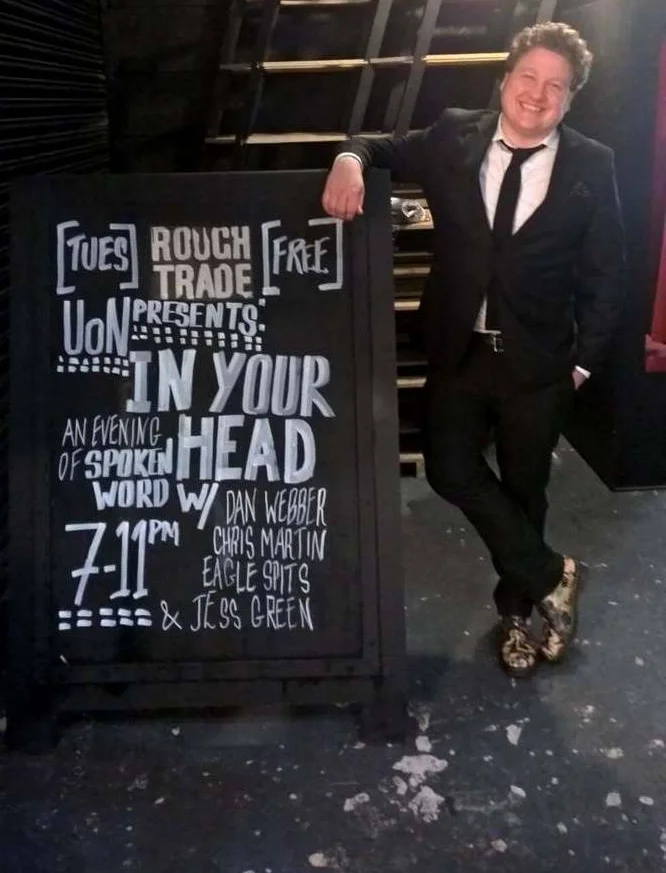 [TUES] ROUGH TRADE [FREE]
UoN PRESENTS:
IN YOUR
HEAD
AN EVENING
OF SPOKEN
WORD W/
DAN WEBBER
CHRIS MARTIN
EAGLE SPITS
& JESS GREEN
7-11PM